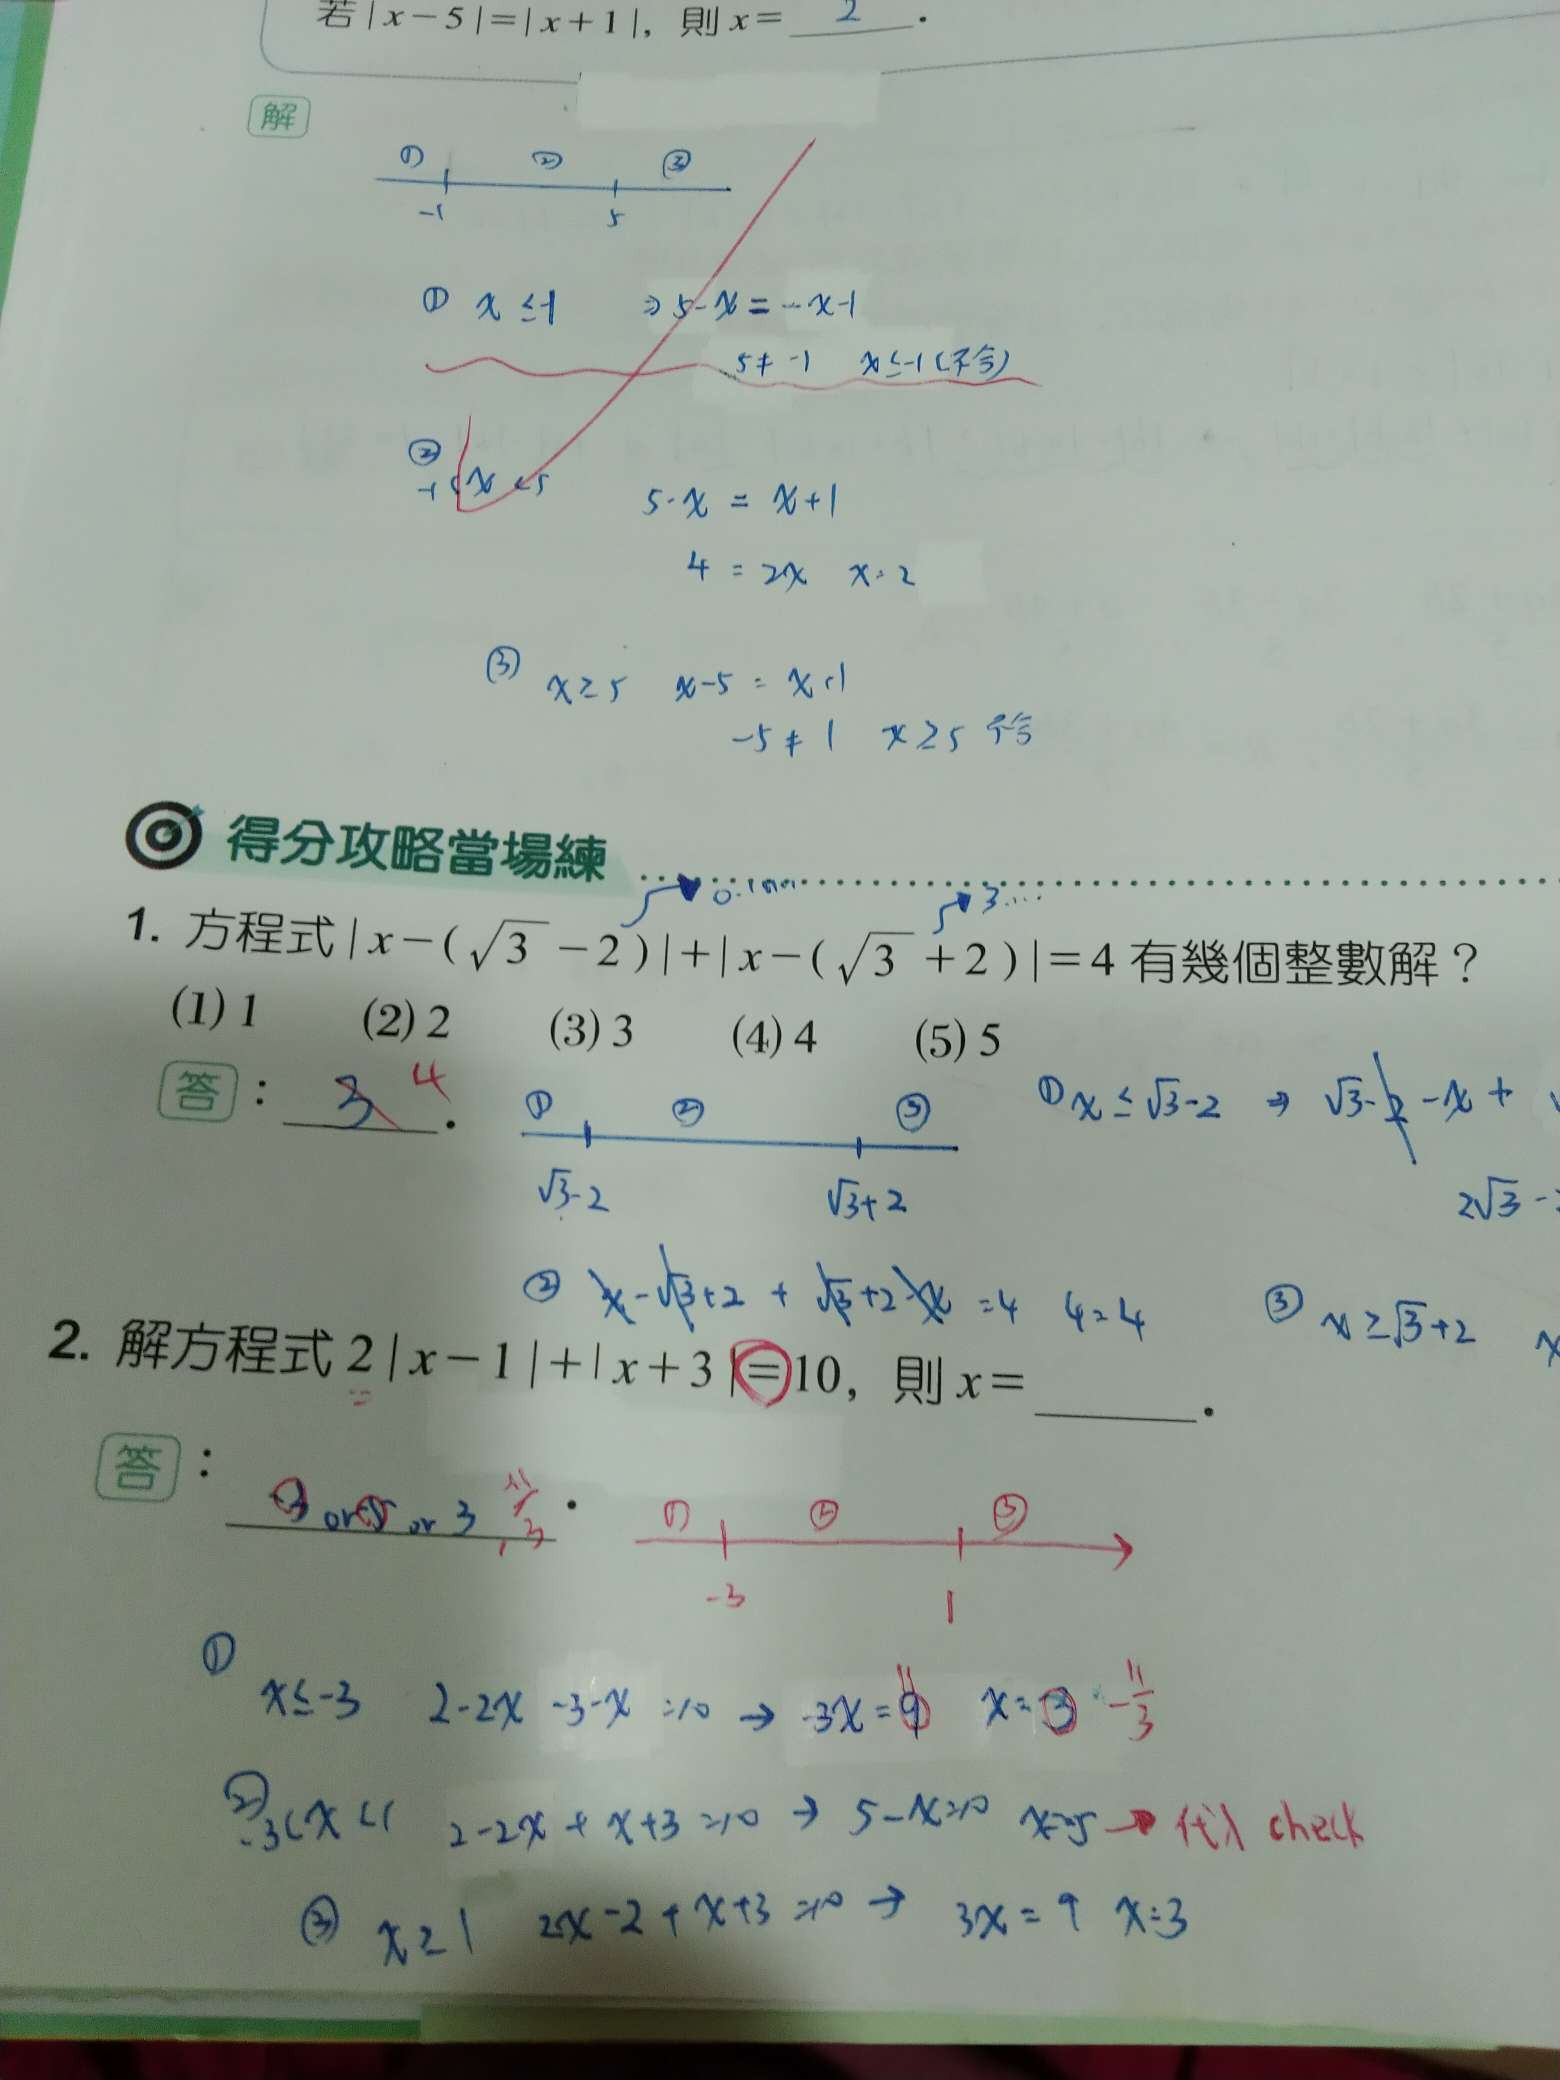 若|x−5|=|x+1|，則x= 2 .
解
① ② ③
-1 5
① x ≤ -1 ⇒ 5-x = -x-1
5≠-1 x≤-1 (不合)
②
-1<x<5 5-x = x+1
4 = 2x x=2
③ x≥5 x-5 = x+1
-5≠1 x≥5 不合
得分攻略當場練
3....
1. 方程式|x−(√3−2)|+|x−(√3+2)|=4有幾個整數解？
(1)1 (2)2 (3)3 (4)4 (5)5
答： 3 4 .
① ② ③
√3-2 √3+2
① x ≤ √3-2 ⇒ √3-2-x +
2√3-
② x-√3+2 + √3+2-x =4 4=4
③ x≥√3+2 x
2. 解方程式2|x−1|+|x+3|=10，則x= .
答： -3 or 5 or 3 .
① ② ③
-3 1
①
x≤-3 2-2x -3-x =10 → -3x = 9 11 x=-3 -11/3
②
-3<x<1 2-2x + x+3 =10 → 5-x=10 x=-5 → 代入 check
③ x≥1 2x-2+x+3 =10 → 3x = 9 x=3